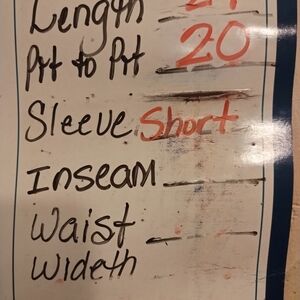 Length
Pit to Pit 20
Sleeve Short
Inseam
Waist
Wideth